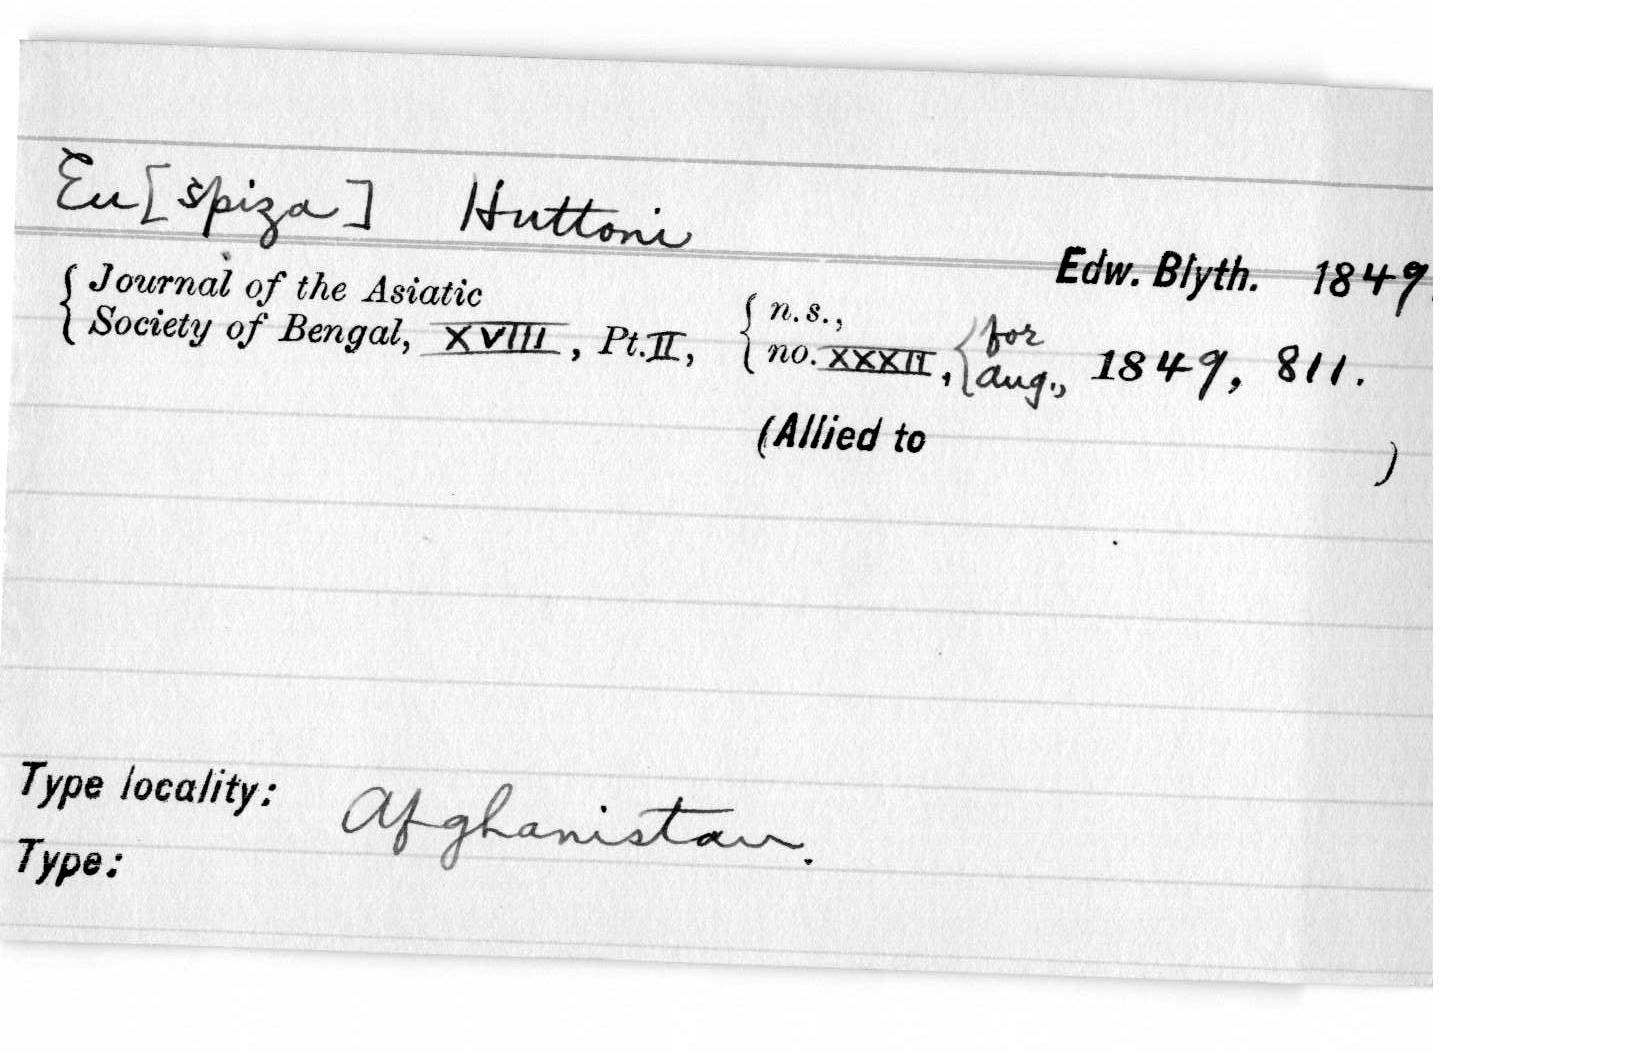 Eu[spiza] Huttoni
Edw. Blyth. 1849.
{ Journal of the Asiatic
{ Society of Bengal, XVIII, Pt. II, { n.s., { for
{ no. XXXII, { aug., 1849, 811.
(Allied to )
Type locality: Afghanistan.
Type: